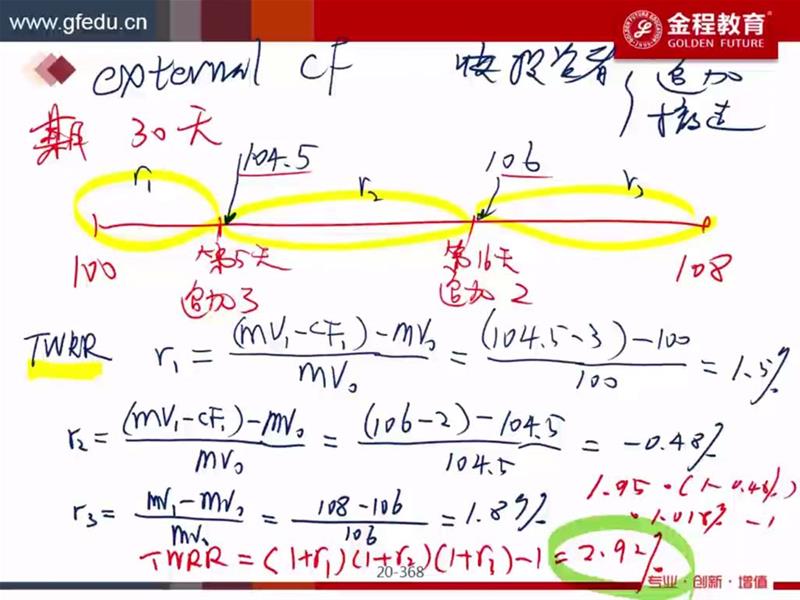 www.gfedu.cn
金程教育
GOLDEN FUTURE
external CF 投资者 追加
撤走
期 30天
r₁ 104.5 r₂ 106 r₃
100 第5天 第16天 108
追加3 追加2
TWRR r₁ = (MV₁-CF₁)-MV₀ / MV₀ = (104.5-3)-100 / 100 = 1.5%
r₂ = (MV₁-CF₁)-MV₀ / MV₀ = (106-2)-104.5 / 104.5 = -0.48%
r₃ = MV₁-MV₀ / MV₀ = 108-106 / 106 = 1.89%
TWRR = (1+r₁)(1+r₂)(1+r₃)-1 = 2.92%
20-368
专业·创新·增值